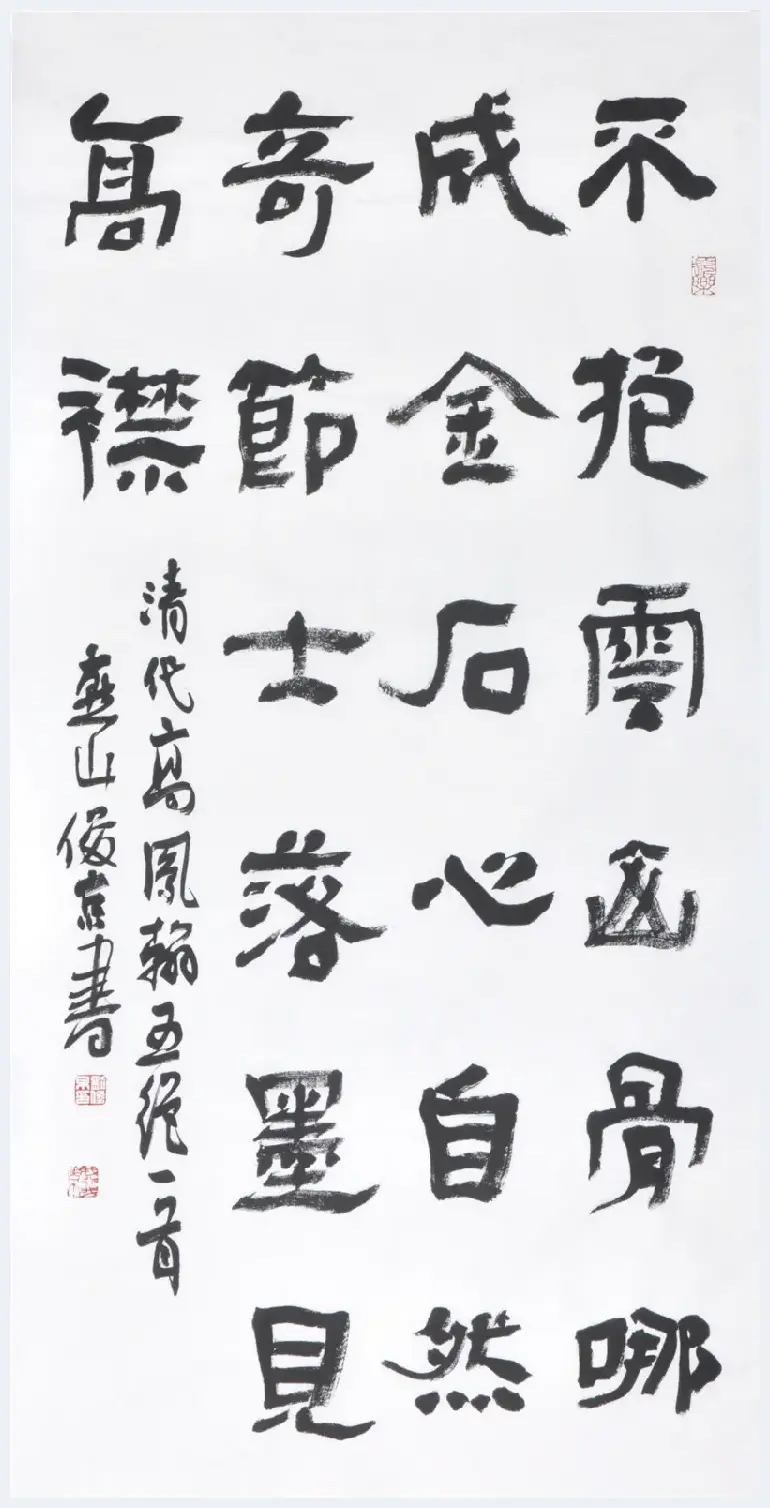 不抱雲山骨哪
成金石心自然
奇節士落墨見
高襟
清代高鳳翰五絕一首
燕山俊書